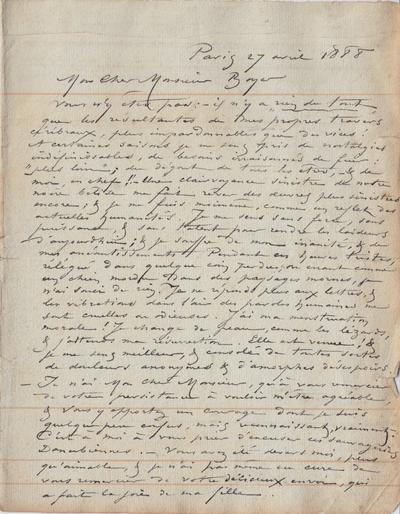 Paris 27 avril 1888
Mon Cher Monsieur Boyer
Vous n'y êtes pas: - il n'y a rien du tout
que les résultantes de mes propres travers
cérébraux, plus impardonnables que des vices!
et certaines saisons je me sens pris de nostalgies
indéfinissables, de besoins irraisonnés de fuir:
"plus loin"; de dégoûts de tous les êtres, & de
moi, en chef! Une clairvoyance sinistre de notre
noire bêtise me fait rêver des choses plus sinistres
encore; & je me fuis moi même, comme un reflet des
actuelles humanités. Je me sens sans force, sans
puissance, & sans talent pour rendre les laideurs
d'aujourd'hui; & je souffre de mon inanité, & de
mes anéantissements. Pendant ces heures tristes,
relégué dans quelque coin perdu, errant comme
un chien, mordu tous des paysages mornes, je
n'ai souci de rien. Je ne réponds plus aux lettres, &
les vibrations dans l'air des paroles humaines me
sont cruelles ou odieuses. J'ai ma menstruation
morale! Je change de peau, comme les lézards,
& j'attends ma résurrection. Elle est venue! &
je me sens meilleur, & consolé de toutes sortes
de douleurs anonymes & d'amorphes désespoirs.
- Je n'ai Mon cher Monsieur, qu'à vous remercier
de votre persistance à vouloir m'être agréable,
& vous y apportez un courage dont je suis
quelque peu confus, mais reconnaissant, vraiment.
C'est à moi à vous prier d'excuser ces sauvageries
Danubiennes. - Vous avez été devers moi, plus
qu'aimable, & je n'ai pas même eu cure de
vous remercier de votre délicieux envoi, qui
a fait la joie de ma fille.